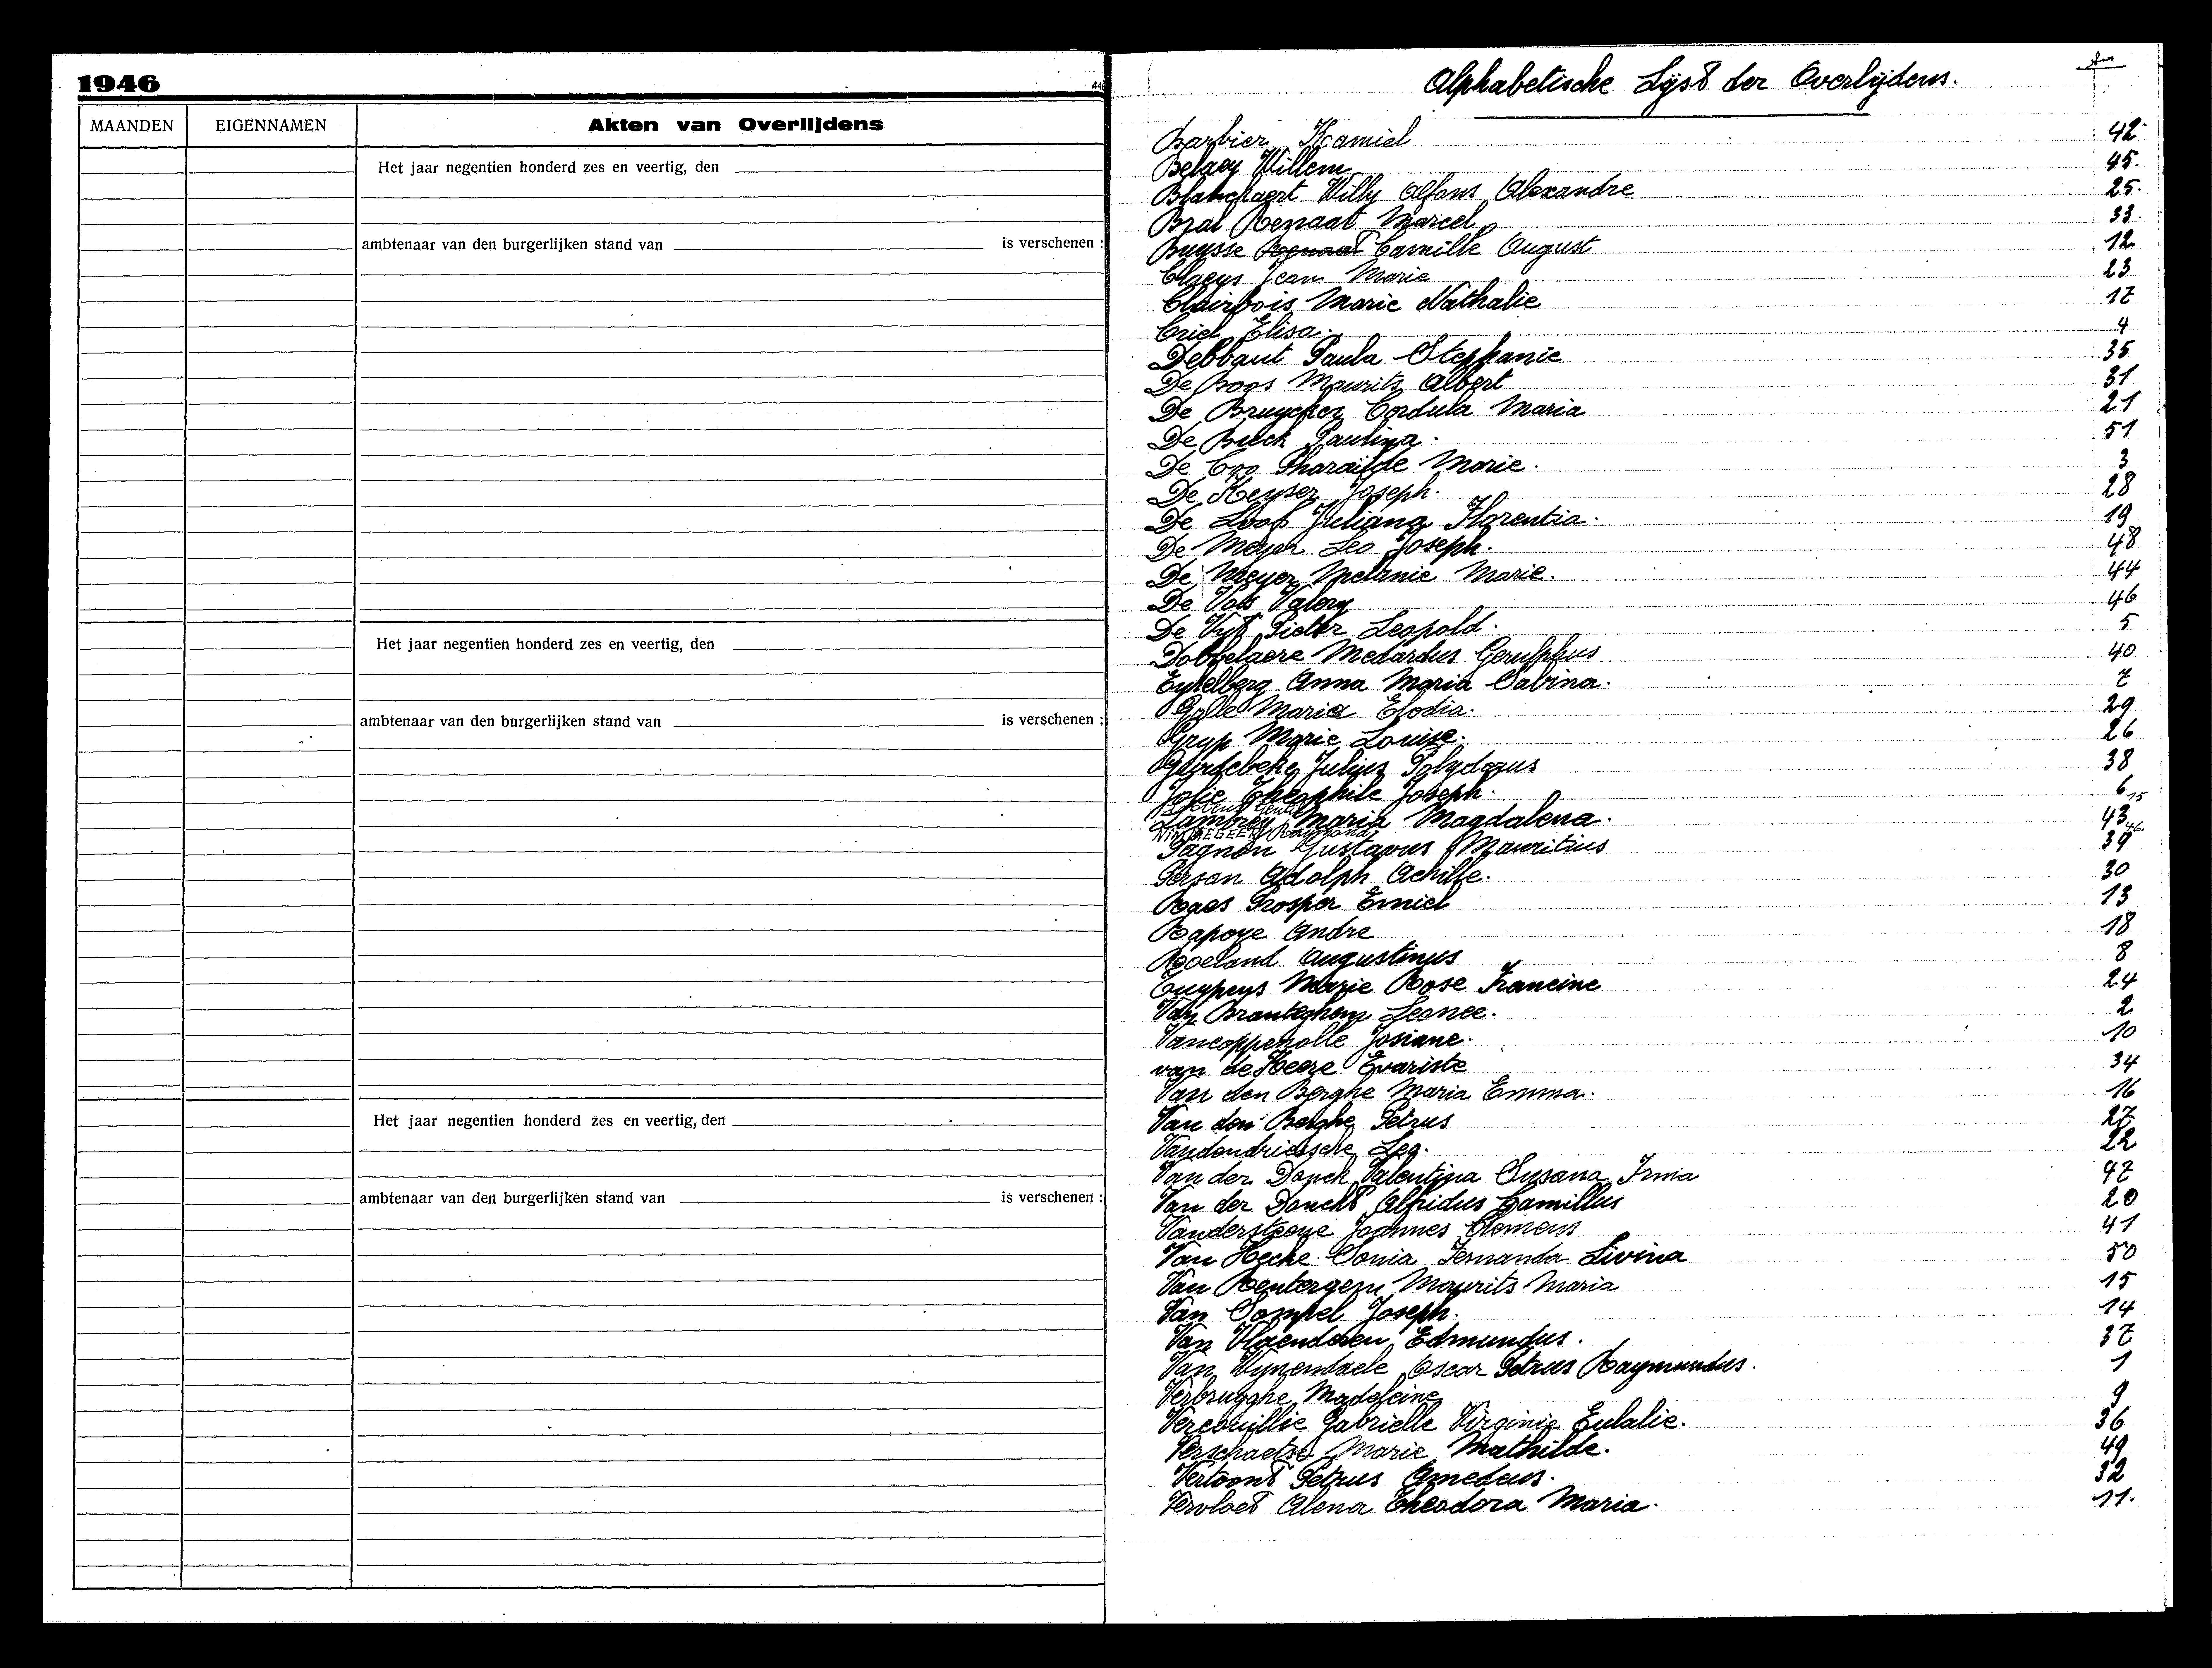 1946
44
MAANDEN EIGENNAMEN Akten van Overlijdens
Het jaar negentien honderd zes en veertig, den
ambtenaar van den burgerlijken stand van is verschenen :
Het jaar negentien honderd zes en veertig, den
ambtenaar van den burgerlijken stand van is verschenen :
Het jaar negentien honderd zes en veertig, den
ambtenaar van den burgerlijken stand van is verschenen :
Alphabetische Lijst der Overlijdens.
Barbier Kamiel 42
Belaey Willem 45.
Blanckaert Willy Alfons Alexandre 25.
Bral Renaat Marcel 33.
Buysse Renaat Camille August 12
Claeys Jean Marie 23
Clairbois Marie Nathalie 17
Criel Elisa. 4
Debbaut Paula Stephanie 35
De Boos Maurits Albert 31
De Bruycker Cordula Maria 21
De Buck Paulina. 51
De Coo Pharaïlde Marie. 3
De Keyser Joseph. 28
De Loof Juliana Florentia. 19
De Meyer Leo Joseph. 48
De Meyer Melanie Marie. 44
De Vos Valery 46
De Vyt Pieter Leopold. 5
Dobbelaere Medardus Gerulphus 40
Eykelberg Anna Maria Sabina. 7
Galle Maria Elodia. 29
Gryp Marie Louise. 26
Julius Polydorus 38
Jolie Theophile Joseph. 6
15
Lammens Maria Magdalena. 43
NIMMEGEERS Raymond 46.
Pagnon Gustavus Mauritius 39
Persan Adolph Achille. 30
Raes Prosper Emiel 13
Rapoye Andre 18
Roeland Augustinus 8
Cuypers Marie Rose Francine 24
Van Branteghem Leonee. 2
Vancoppenolle Josiane. 10
van de Keere Evariste 34
Van den Berghe Maria Emma. 16
Van den Berghe Petrus 27
Vandendriessche Leo. 22
Van der Donck Valentina Susana Irma 47
Van der Donckt Alfridus Camillus 20
Vandersteene Joannes Clemens 41
Van Hecke Sonia Fernanda Livina 50
Van Rentergem Maurits Maria 15
Van Sompel Joseph. 14
Van Vlaenderen Edmundus. 37
Van Wynendaele Oscar Petrus Raymundus. 1
Verbrugghe Madeleine 9
Vercouillie Gabrielle Virginie Eulalie. 36
Verschaetse Marie Mathilde. 49
Vertoont Petrus Amedeus. 32
Vervloet Alena Theodora Maria. 11.